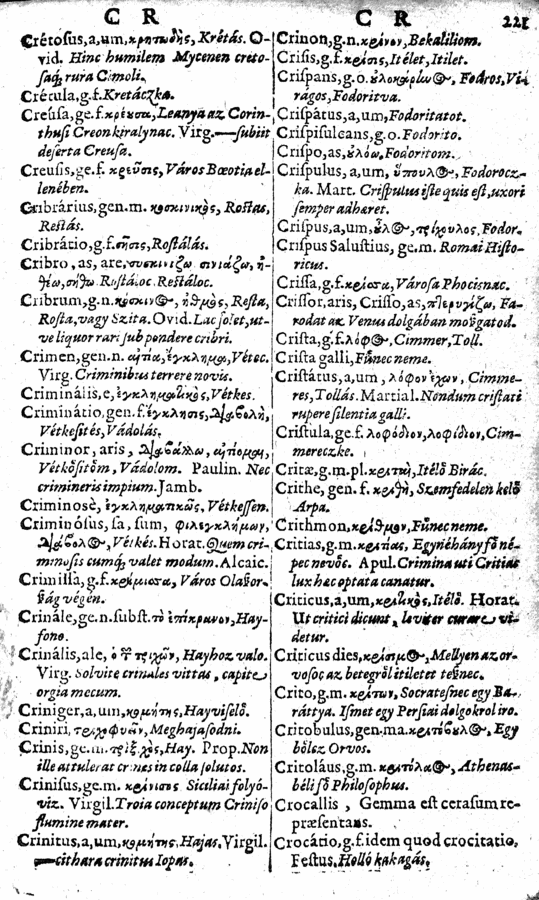 C R
C R
221
Cretosus, a, um, κρητώδης, Krétás. O-
vid. Hinc humilem Mycenen creto-
saq́; rura Cimoli.
Crétula, g. f. Kretáczka.
Creusa, ge. f. κρέυσα, Leanya az Corin-
thusi Creon kiralynac. Virg. — subiit
deserta Creusa.
Creusis, ge. f. κρεῦσις, Város Bœotia el-
lenében.
Cribrárius, gen. m. κοσκινικὸς, Rostas,
Restás.
Cribrátio, g. f. σῆσις, Rostálás.
Cribro, as, are, συσκινίζω σινιάζω, ἠ-
θέω, σήθω. Rostáloc. Restáloc.
Cribrum, g. n. κόσκινον, ἠθμὸς, Resta,
Rosta, vagy Szita. Ovid. Lac solet, ut-
ve liquor rari sub pondere cribri.
Crimen, gen. n. αἰτία, ἔγκλημα, Vétec.
Virg. Criminibus terrere novis.
Criminális, e, ἐγκληματικὸς, Vétkes.
Criminátio, gen. f. ἔγκλησις, διαβολὴ,
Vétkesités, Vádolás.
Criminor, aris, διαβάλλω, αἰτίομαι,
Vétkősitőm, Vádolom. Paulin. Nec
crimineris impium. Jamb.
Criminosè, ἐγκληματικῶς, Vétkessen.
Criminósus, sa, sum, φιλεγκλήμων,
διάβολος, Vétkés. Horat. Quem cri-
minosis cumq́; valet modum. Alcaic.
Crimissa, g. f. κρίμισσα, Város Olaszor-
szág végén.
Crinále, ge. n. subst. τὸ ἐπίκρανον, Hay-
fonó.
Crinális, ale, ὁ τ τριχῶν, Hayhoz valo.
Virg. Solvite crinales vittas, capite
orgia mecum.
Criniger, a, um, κομήτης, Hayviselő.
Criniri, τριχοφυῶν, Meghajasodni.
Crinis, ge. m. θρὶξ χὸς, Hay. Prop. Non
ille attulerat crines in colla solutos.
Crinisus, ge. m. κρίνισος Siciliai folyó-
viz. Virgil. Troia conceptum Criniso
flumine mater.
Crinitus, a, um, κομήτης, Hajas. Virgil.
— cithara crinitus Iopas.
Crinon, g. n. κρίνον, Bekaliliom.
Crisis, g. f. κρίσις, Itélet, Itilet.
Crispans, g. o. ὐλοκάρηνος, Fodros, Vi-
ragos, Fodoritva.
Crispátus, a, um, Fodoritatot.
Crispisulcans, g. o. Fodorito.
Crispo, as, ὐλόω, Fodoritom.
Crispulus, a, um, ὕπουλος, Fodorocz-
ka. Mart. Crispulus iste quis est, uxori
semper adhæret.
Crispus, a, um, ὖλος, τείχουλος, Fodor.
Crispus Salustius, ge. m. Romai Histo-
ricus.
Crissa, g. f. κρίσσα, Városa Phocisnac.
Crissor, aris, Crisso, as, πτερυγίζω, Fa-
rodat az Venus dolgában mozgatod.
Crista, g. f. λόφος, Cimmer, Toll.
Crista galli, Fűnec neme.
Cristátus, a, um, λόφον ἔχων, Cimme-
res, Tollás. Martial. Nondum cristati
rupere silentia galli.
Cristula, ge. f. λοφάδιον, λοφίδιον, Cim-
mereczke.
Critæ, g. m. pl. κριταὶ, Itélő Birác.
Crithe, gen. f. κριθὴ, Szemfedelen kelő
Arpa.
Crithmon, κρίθμον, Fűnec neme.
Critias, g. m. κριτίας, Egynéhány fő né-
pec nevőc. Apul. Crimina uti Critias
lux hac optata canatur.
Criticus, a, um, κριτικὸς, Itélő. Horat.
Ut critici dicunt, leviter curare vi-
detur.
Criticus dies, κρίσιμος, Mellyen az or-
vosoc az betegről itiletet tesnec.
Crito, g. m. κρίτων, Socratesnec egy Ba-
ráttya. Ismet egy Persiai dolgokrol iro.
Critobulus, gen. ma. κριτόβουλος, Egy
bőlcz Orvos.
Critoláus, g. m. κριτόλαος, Athenas-
béli fő Philosophus.
Crocallis, Gemma est cerasum re-
præsentans.
Crocátio, g. f. idem quod crocitatio,
Festus. Holló kakagás.